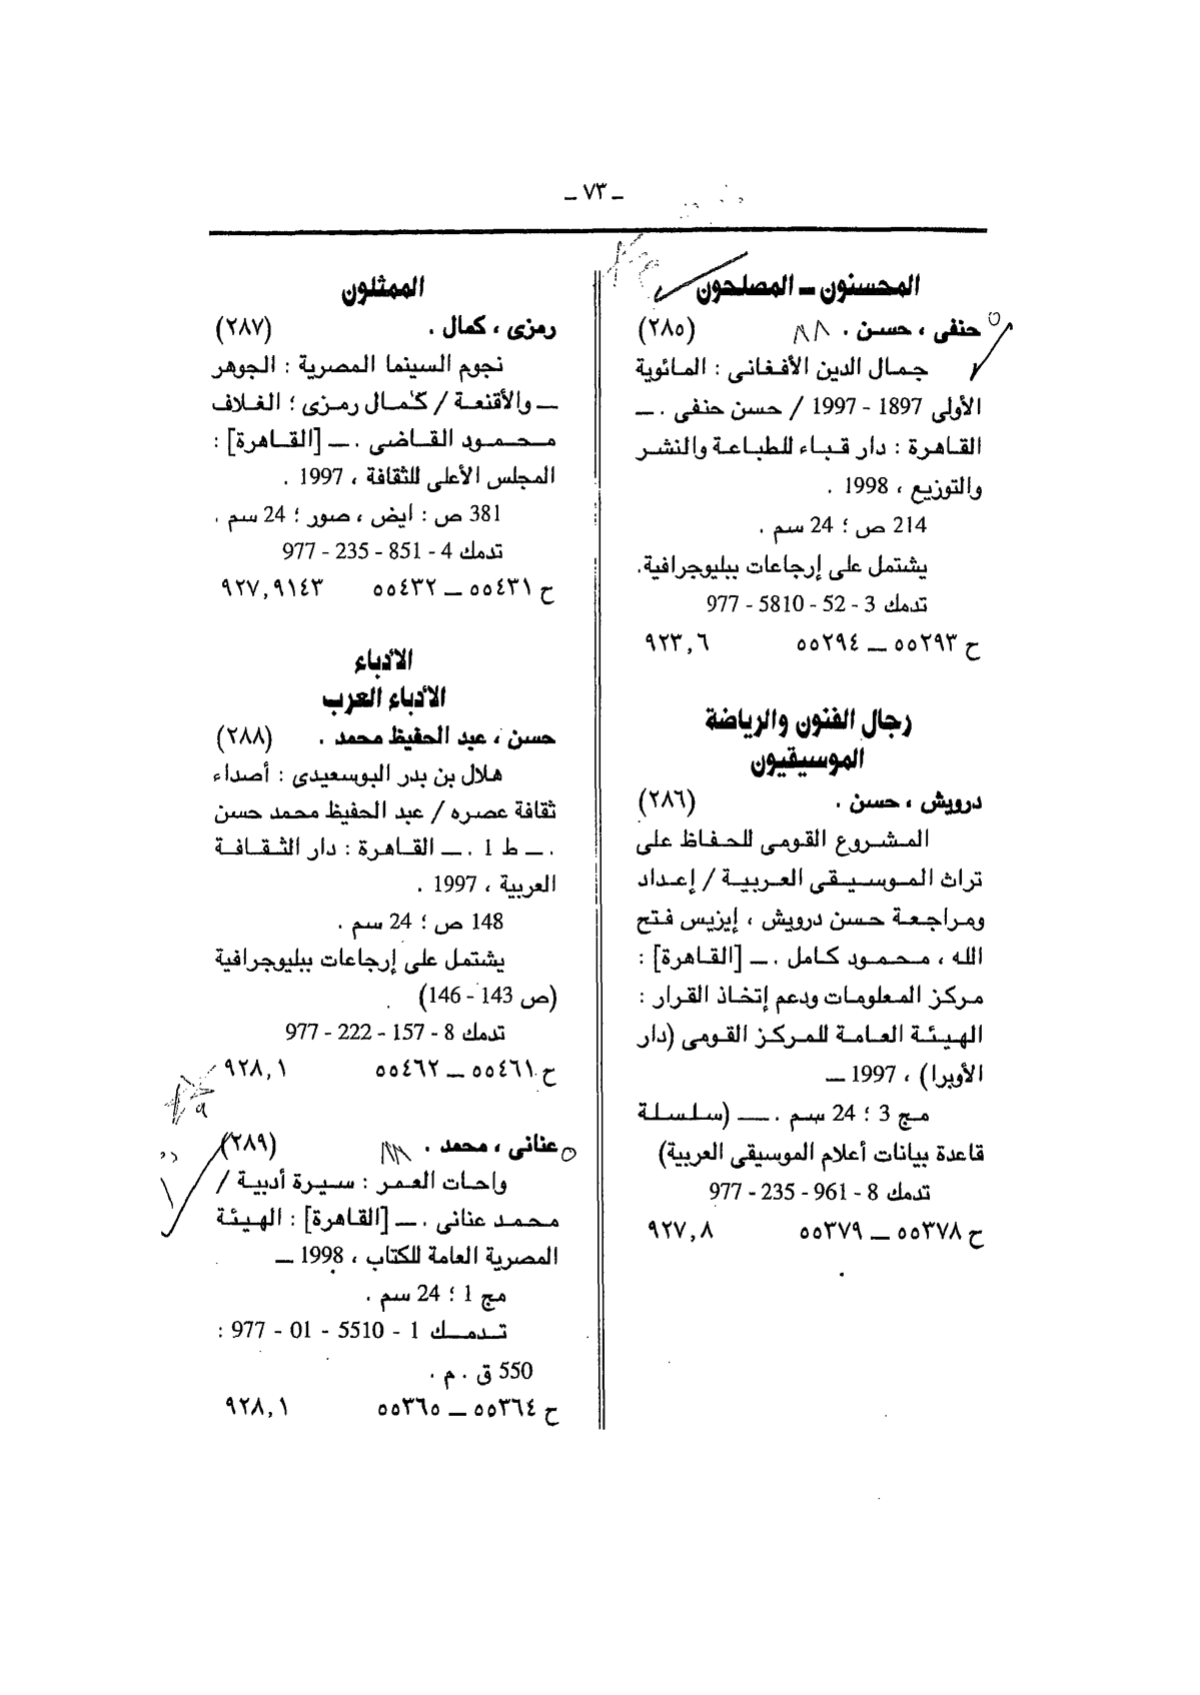 ـ ٧٣ ـ
المحسنون ـ المصلحون
حنفى ، حسن . (٢٨٥)
جمال الدين الأفغانى : المائوية
الأولى 1897 - 1997 / حسن حنفى . ـ
القاهرة : دار قباء للطباعة والنشر
والتوزيع ، 1998 .
214 ص ؛ 24 سم .
يشتمل على إرجاعات ببليوجرافية.
تدمك 3 - 52 - 5810 - 977
ح ٥٥٢٩٣ ـ ٥٥٢٩٤ ٩٢٣,٦
رجال الفنون والرياضة
الموسيقيون
درويش ، حسن . (٢٨٦)
المشروع القومى للحفاظ على
تراث الموسيقى العربية / إعداد
ومراجعة حسن درويش ، إيزيس فتح
الله ، محمود كامل . ـ [القاهرة] :
مركز المعلومات ودعم إتخاذ القرار :
الهيئة العامة للمركز القومى (دار
الأوبرا) ، 1997 ـ
مج 3 ؛ 24 سم . ـ (سلسلة
قاعدة بيانات أعلام الموسيقى العربية)
تدمك 8 - 961 - 235 - 977
ح ٥٥٣٧٨ ـ ٥٥٣٧٩ ٩٢٧,٨
الممثلون
رمزى ، كمال . (٢٨٧)
نجوم السينما المصرية : الجوهر
ـ والأقنعة / كمال رمزى ؛ الغلاف
محمود القاضى . ـ [القاهرة] :
المجلس الأعلى للثقافة ، 1997 .
381 ص : ايض ، صور ؛ 24 سم .
تدمك 4 - 851 - 235 - 977
ح ٥٥٤٣١ ـ ٥٥٤٣٢ ٩٢٧,٩١٤٣
الأدباء
الأدباء العرب
حسن ، عبد الحفيظ محمد . (٢٨٨)
هلال بن بدر البوسعيدى : أصداء
ثقافة عصره / عبد الحفيظ محمد حسن
. ـ ط 1 . ـ القاهرة : دار الثقافة
العربية ، 1997 .
148 ص ؛ 24 سم .
يشتمل على إرجاعات ببليوجرافية
(ص 143 - 146)
تدمك 8 - 157 - 222 - 977
ح ٥٥٤٦١ ـ ٥٥٤٦٢ ٩٢٨,١
عنانى ، محمد . (٢٨٩)
واحات العمر : سيرة أدبية /
محمد عنانى . ـ [القاهرة] : الهيئة
المصرية العامة للكتاب ، 1998 ـ
مج 1 ؛ 24 سم .
تدمك 1 - 5510 - 01 - 977 :
550 ق . م .
ح ٥٥٣٦٤ ـ ٥٥٣٦٥ ٩٢٨,١